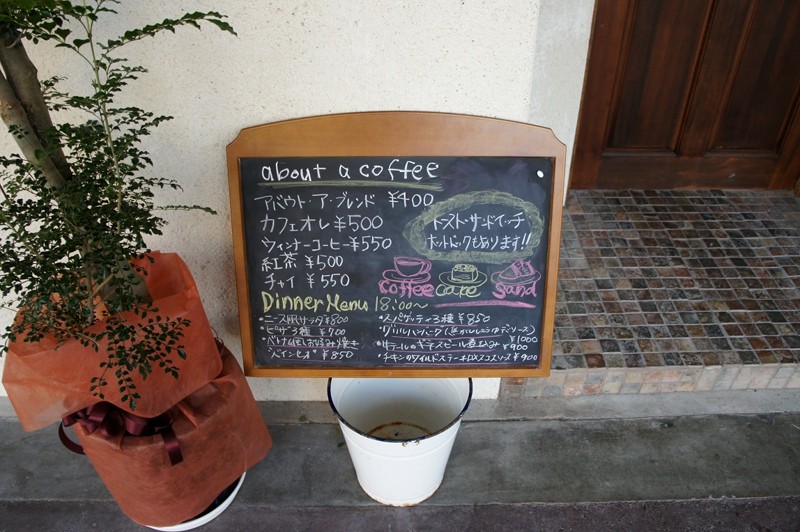 about a coffee
アバウト・ア・ブレンド ¥400
カフェオレ ¥500
ウィンナーコーヒー ¥550
紅茶 ¥500
チャイ ¥550
トースト・サンドイッチ
ホットドックもあります!!
coffee cake sand
Dinner Menu 18:00〜
・ニース風サラダ ¥800
・ピザ3種 ¥900
・ベトナム風お好み焼き
"バインセオ" ¥850
・スパゲッティ3種 ¥850
・グリルハンバーグ
¥1000
・牛テールのギネスビール煮込み ¥900
・チキンのワイルドステーキ ¥900